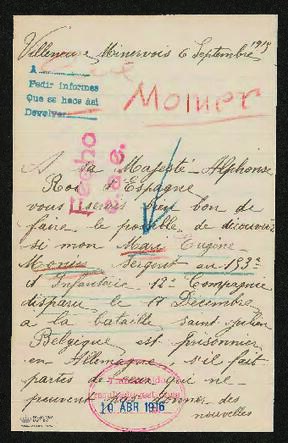 Villeneuve Minervois 6 Septembre 1915
A
Pedir informes
Que se haga así
Devolver
Monier
Fecho
A sa Majesté Alphonse
Roi d'Espagne
vous serez bien bon de
faire le possible de découvrir
si mon Mari Eugène
Monier Sergent au 153e
d'Infanterie 12e Compagnie
disparu le 17 Decembre
a la bataille Saint Julien
Belgique est prisonnier
en Allemagne s'il fait
partes de ceux qui ne
peuvent pas donner des
nouvelles
10 ABR 1916